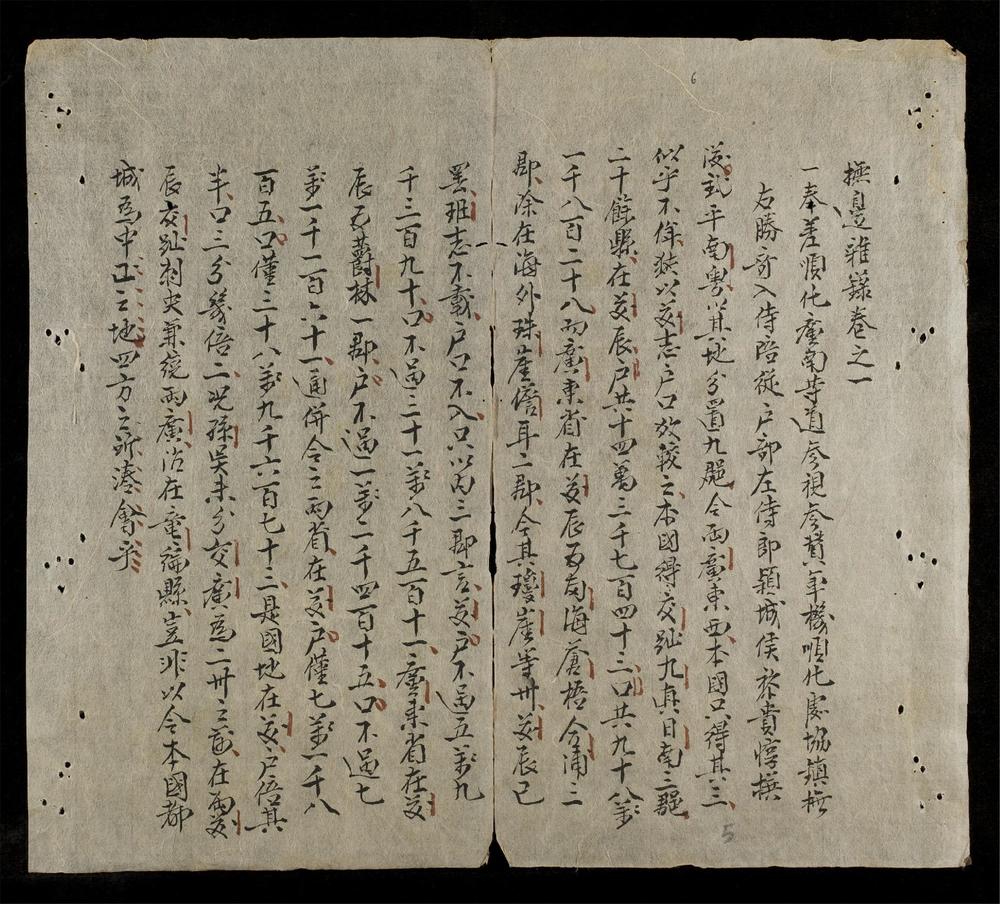 撫邊雜錄卷之一
一奉差順化廣南等道參視參贊軍機順化處協鎮撫
右勝奇入侍陪從户部左侍郎穎城侯黎貴惇撰
漢武平南粤以其地分置九郡今両廣東西本國只得其三
似乎不侔狹以漢志户口攷較之本國得交趾九真日南三郡
二十餘縣在漢辰户共十四萬三千七百四十三口共九十八萬
一千八百二十八而廣東省在漢辰爲南海蒼梧合浦三
郡除在海外珠崖儋耳二郡今其瓊崖等州漢辰已
罢班志不載户口不入只以内三郡言漢户不過五萬九
千三百九十口不過二十一萬八千五百十一廣東省在漢
辰爲爵林一郡户不過一萬二千四百十五口不過七
萬一千一百六十一通併今之両省在漢户僅七萬一千八
百五口僅二十八萬九千六百七十二是國地在漢户倍其
半口三分幾倍二况孫吴未分交廣爲二州之前在両漢
辰交趾刺史兼統両廣治在竜編縣豈非以今本國都
城爲中正之地四方之所湊會乎
6
5